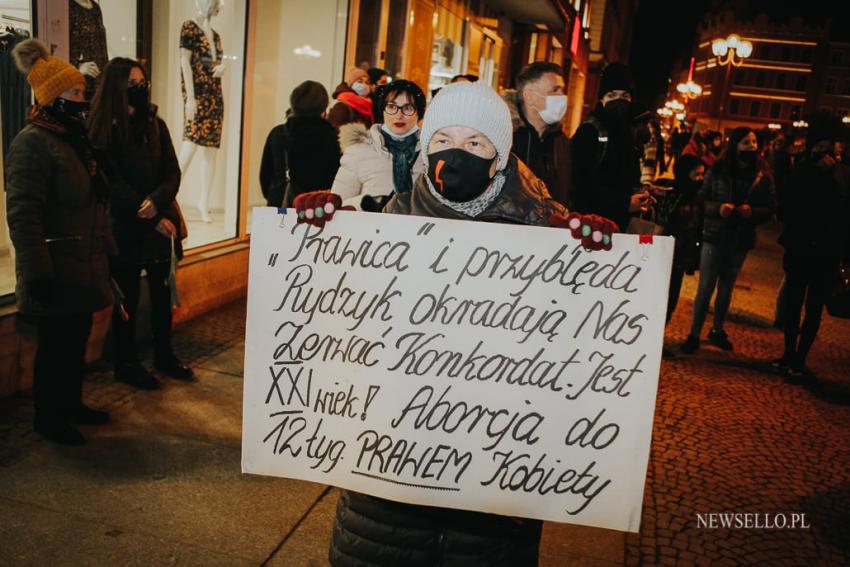 „Prawica" i przybłęda
Rydzyk okradają Nas
Zerwać Konkordat. Jest
XXI wiek! Aborcja do
12 tyg. PRAWEM Kobiety
NEWSELLO.PL